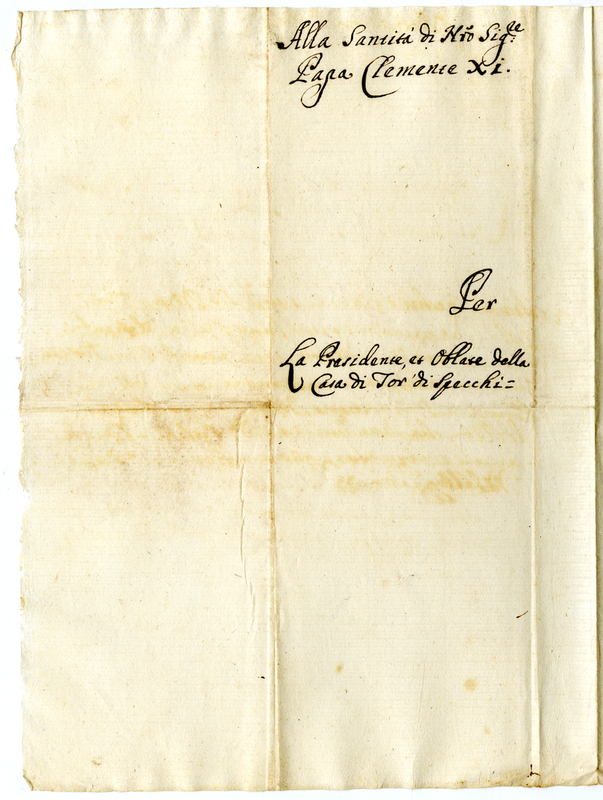 Alla Santità di Nrō Sigre
Papa Clemente XI.
Per
La Presidente, et Oblate della
Casa di Tor' di Specchi=